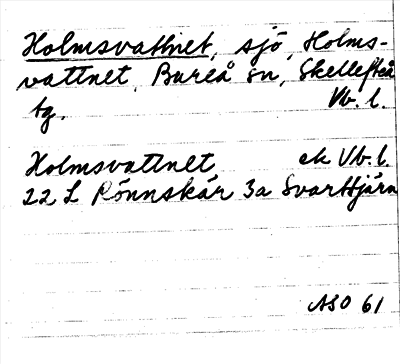 Holmsvattnet, sjö, Holms-
vattnet, Bureå sn, Skellefteå
tg. Vb. l.
Holmsvattnet ek Vb. l.
22 L Rönnskär 3a Svarttjärn
ASO 61